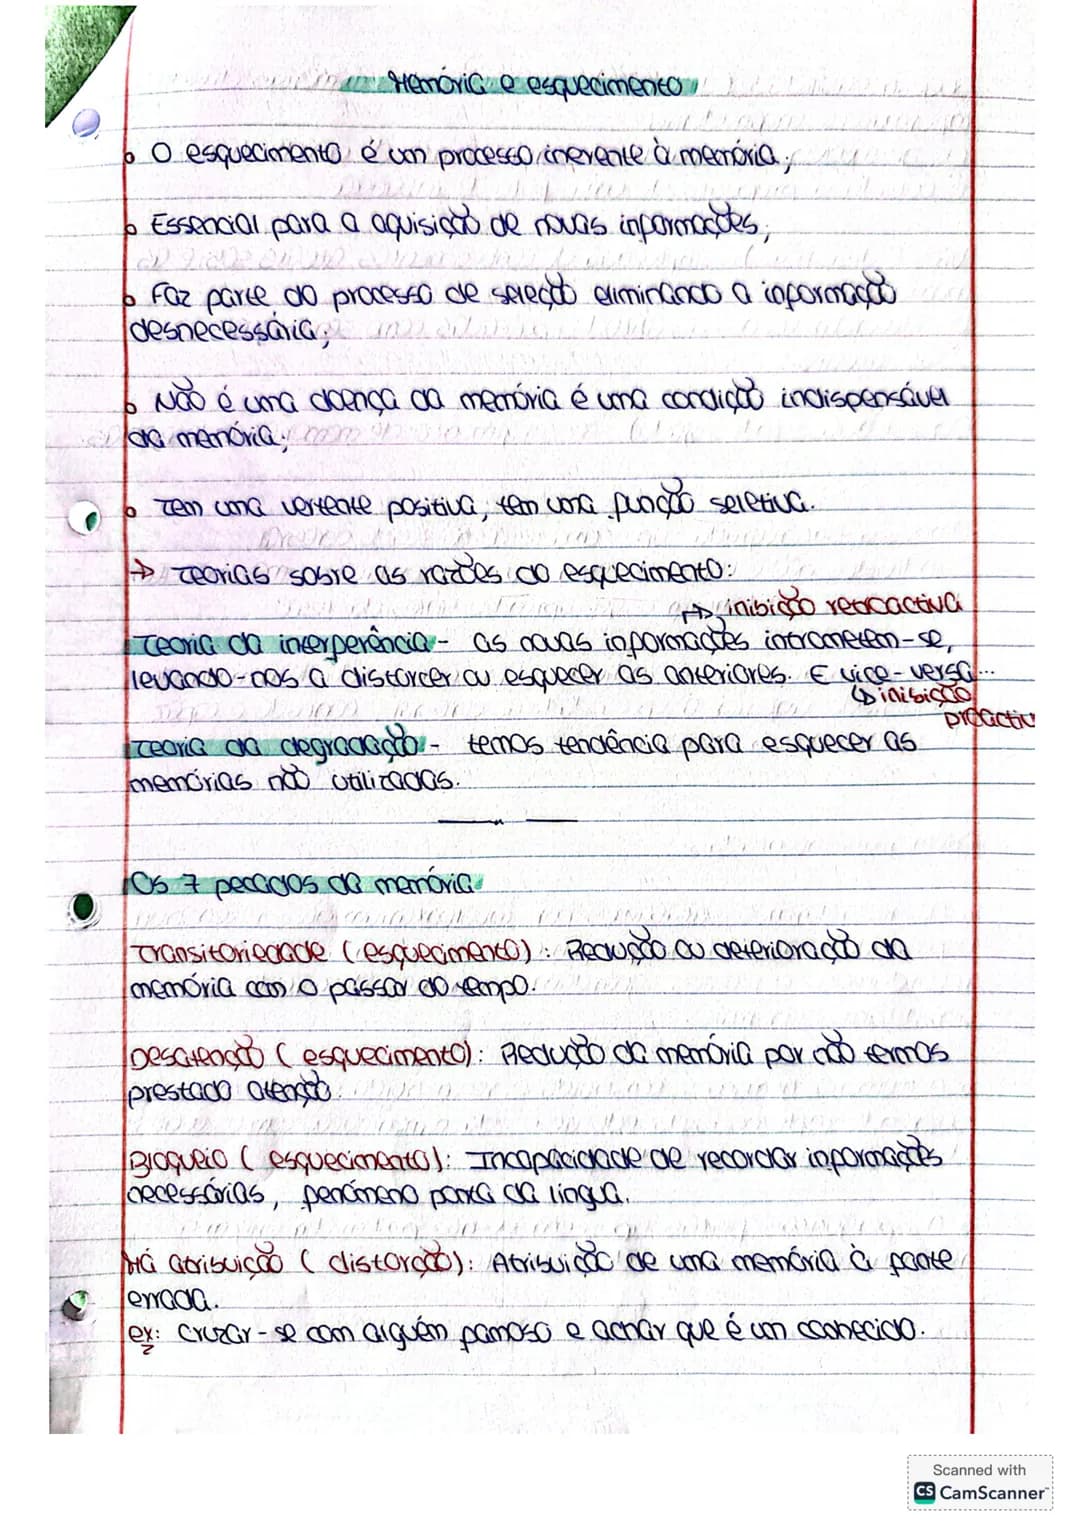 Memória e esquecimento
O esquecimento é um processo inerente à memória;
Essencial para a aquisição de novas informações;
Faz parte do processo de seleção eliminando a informação
desnecessária;
Não é uma doença da memória é uma condição indispensável
da memória;
Tem uma vertente positiva, tem uma função seletiva.
→ Teorias sobre as razões do esquecimento:
↳ inibição retroactiva
Teoria da interferência - as novas informações intrometem-se,
levando-nos a distorcer ou esquecer as anteriores. E vice-versa...
↳ inibição
proactiv
Teoria da degradação - temos tendência para esquecer as
memórias não utilizadas.
Os 7 pecados da memória
Transitoriedade (esquecimento): Redução ou deterioração da
memória com o passar do tempo.
Desatenção (esquecimento): Redução da memória por não termos
prestado atenção.
Bloqueio (esquecimento): Incapacidade de recordar informações
necessárias, fenómeno ponta da língua.
Má atribuição (distorção): Atribuição de uma memória à fonte
errada.
ex: Cruzar-se com alguém famoso e achar que é um conhecido.
Scanned with
CS CamScanner